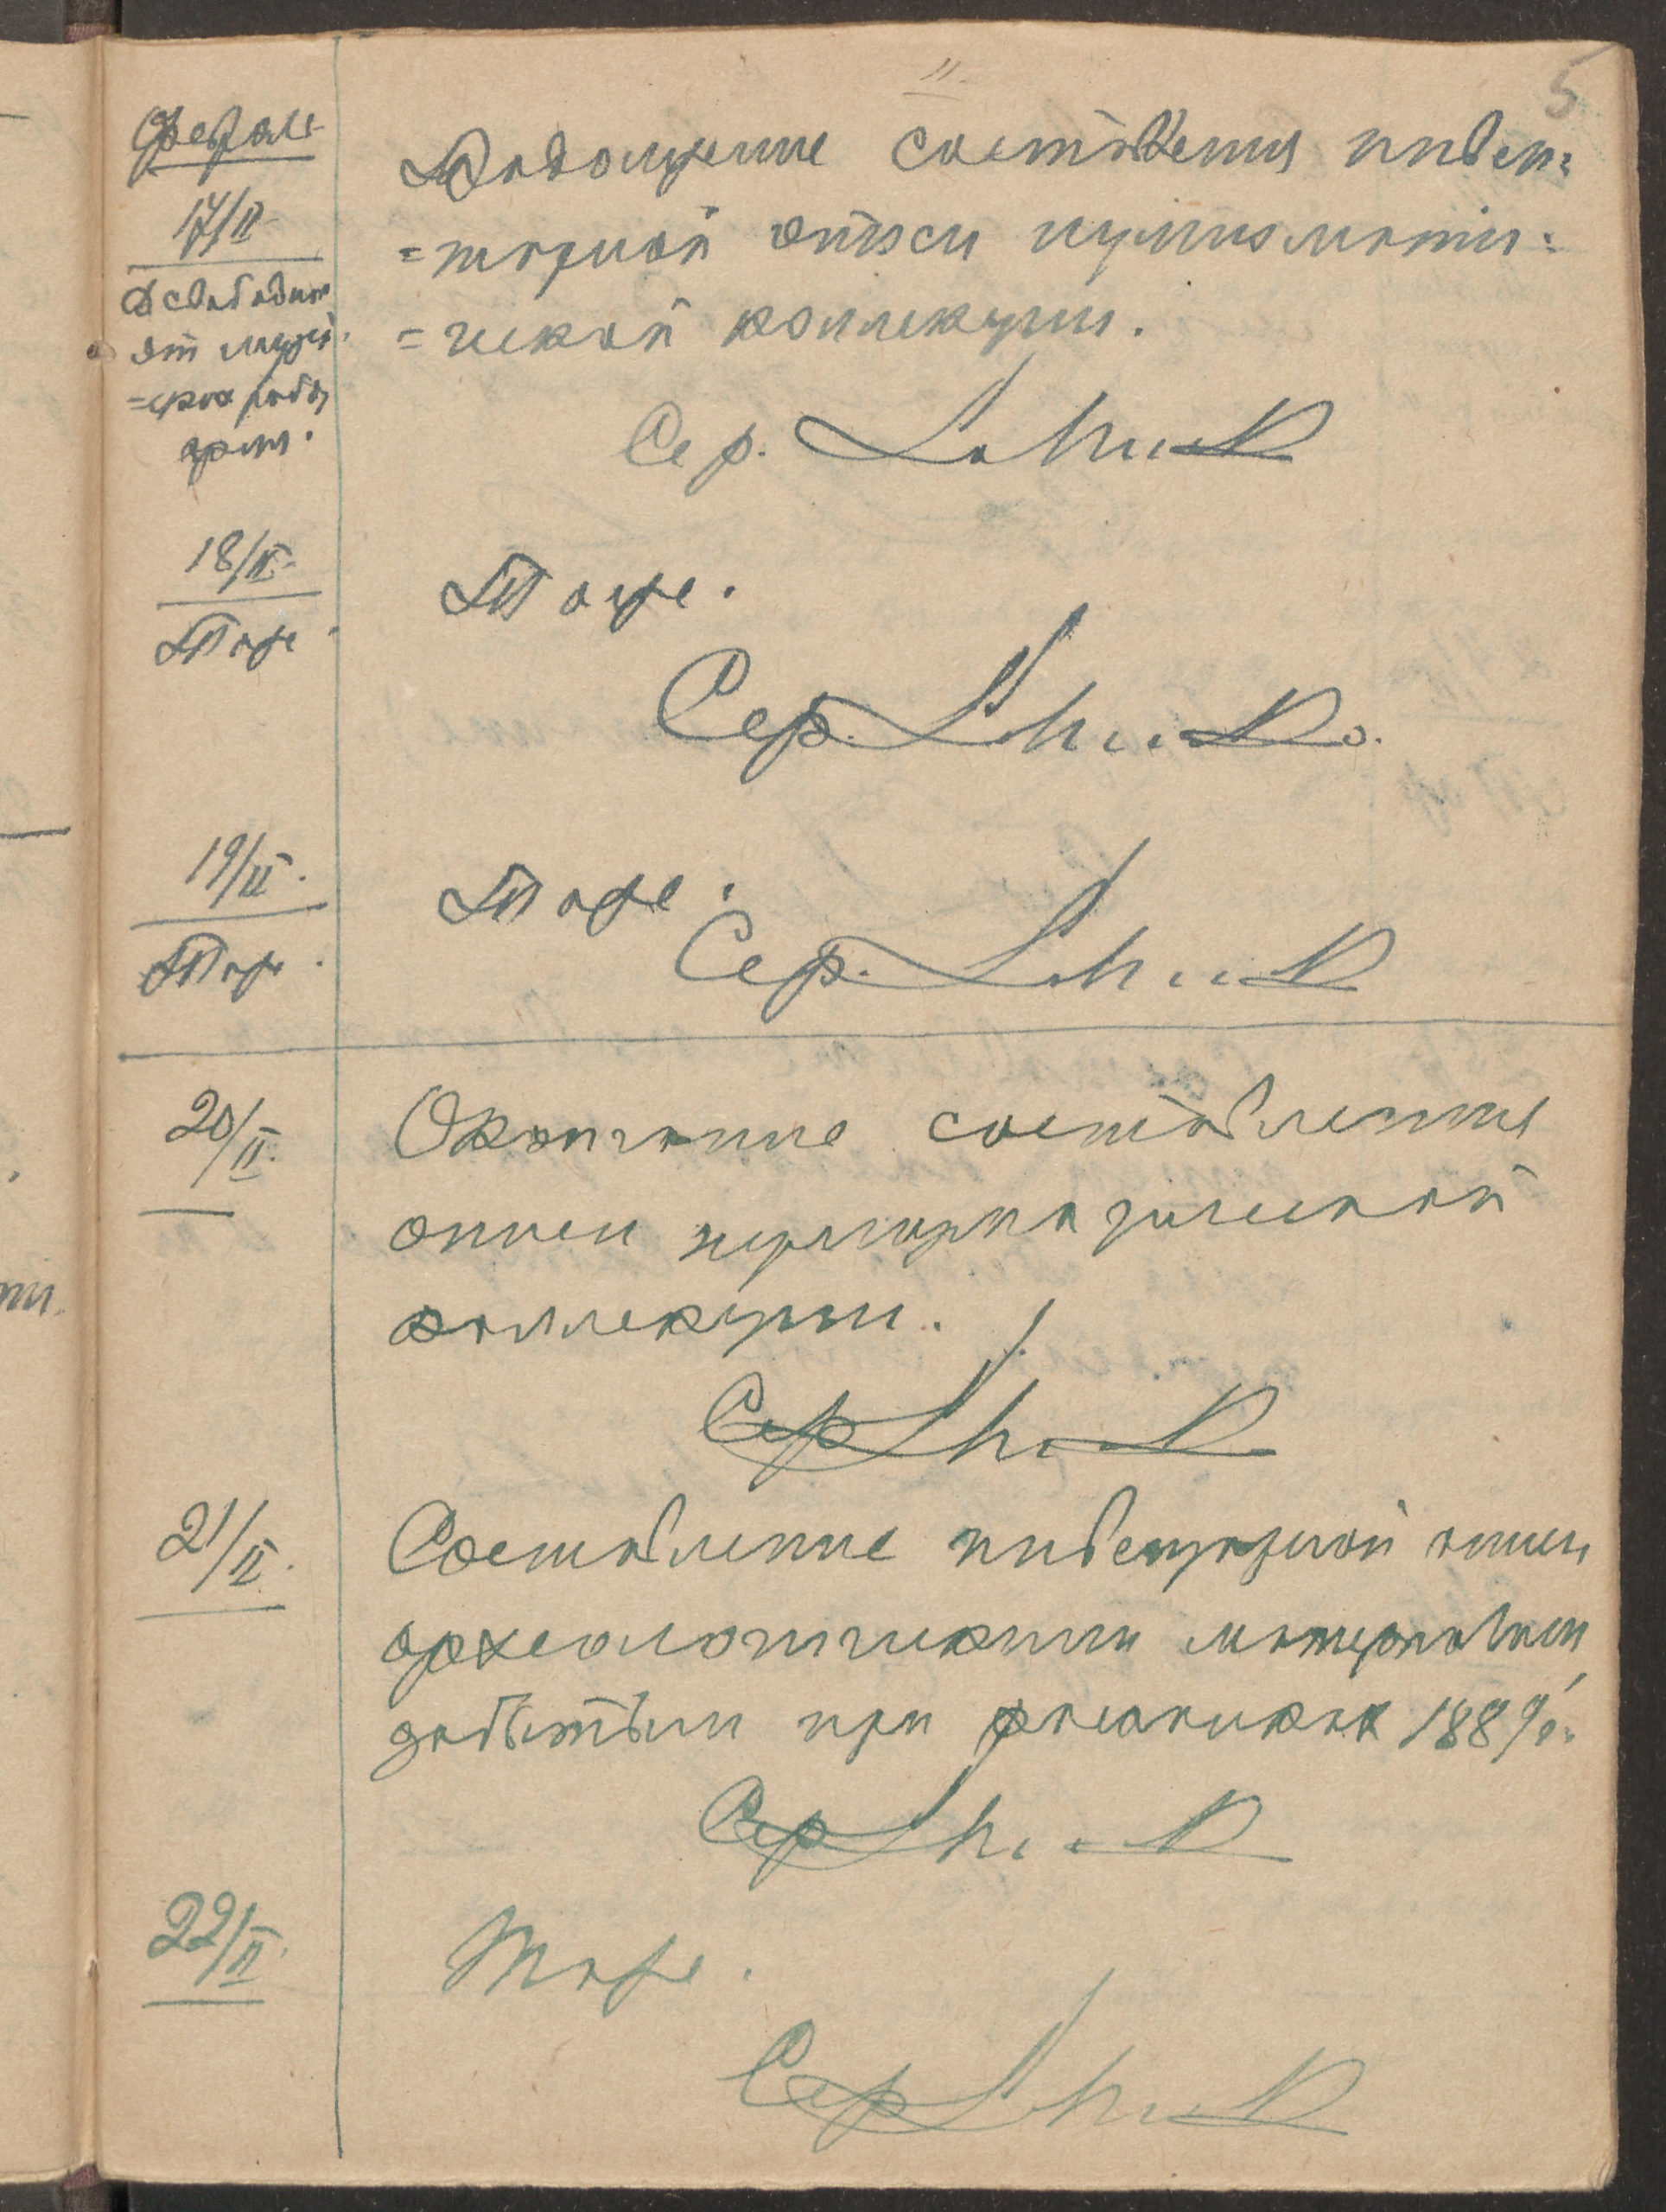 11.
5
Феврале
17/II
В свободное
от музей-
=ских работ
время.
Продолжение составления инвен=
=тарной описи нумизмати=
=ческой коллекции.
Сер.
18/II
То же.
То же.
Сер.
19/II.
То же.
То же.
Сер.
20/II.
Окончание составления
описи нумизматической
коллекции.
Сер
21/II.
Составление инвентарной описи
археологическим материалам,
добытым при раскопках 1889 г.
Сер
22/II.
То же.
Сер